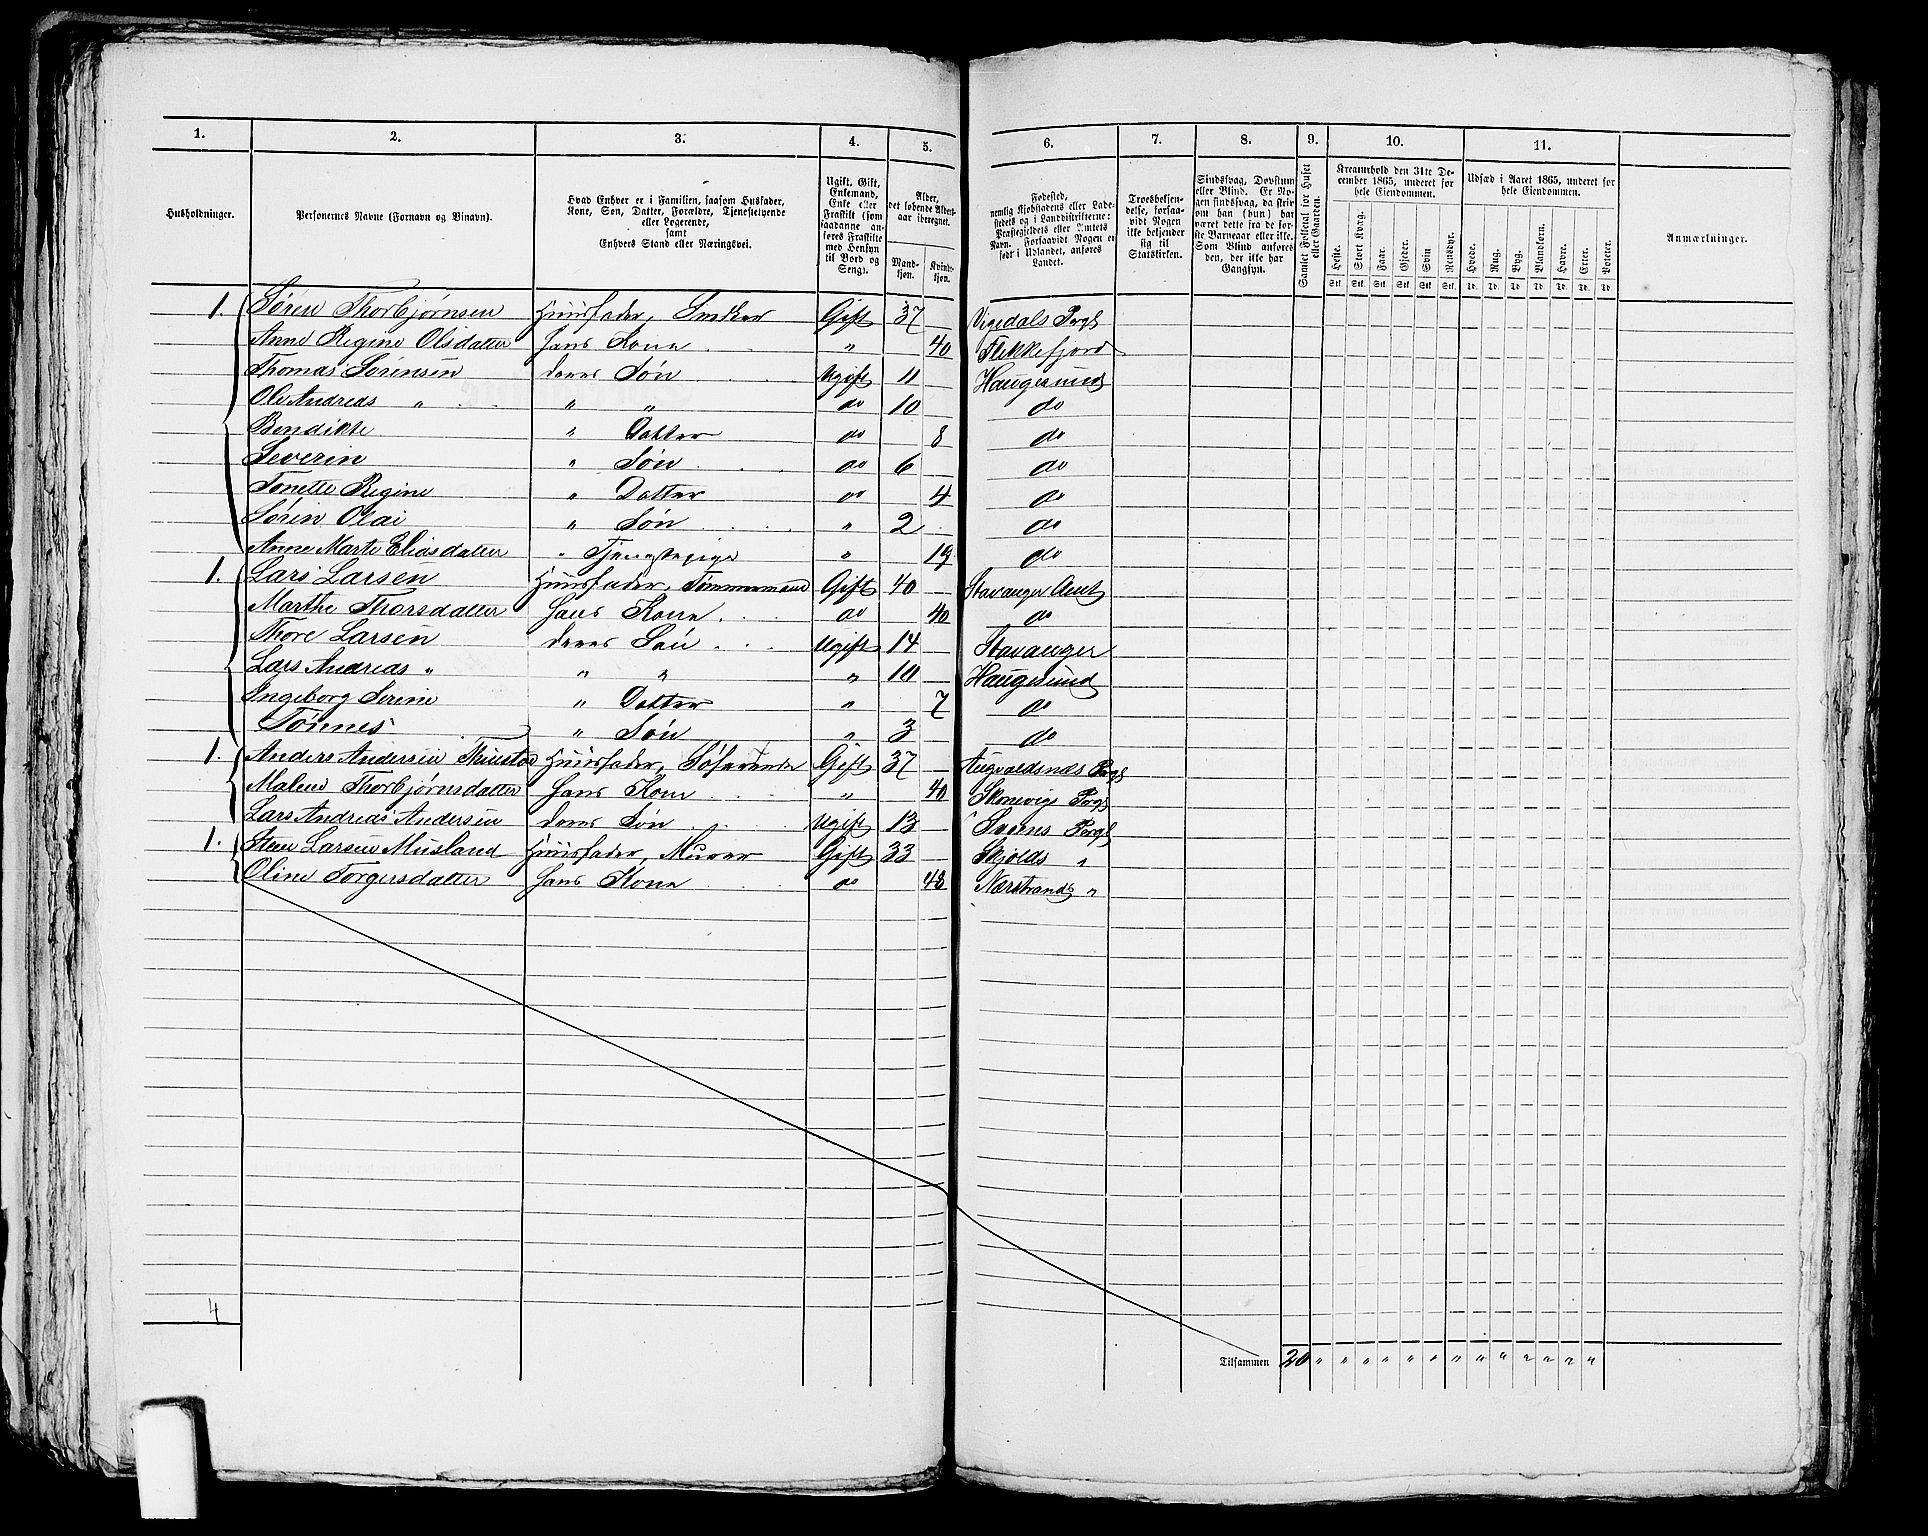 1. 2. 3. 4. 5. 6. 7. 8. 9. 10. 11.
Husholdninger.
Personernes Navne (Fornavn og Binavn).
Hvad Enhver er i Familien, saasom Husfader,
Kone, Søn, Datter, Forældre, Tjenestetyende
eller Logerende,
samt
Enhvers Stand eller Næringsvei.
Ugift, Gift,
Enkemand,
Enke eller
Fraskilt (som
saadanne an-
føres Fraskilte
med Hensyn
til Bord og
Seng).
Alder,
det løbende Alders-
aar iberegnet.
Mand-
kjøn.
Kvinde-
kjøn.
Fødested,
nemlig Kjøbstadens eller Lade-
stedets og i Landdistrikterne:
Præstegjeldets eller Amtets
Navn. Forsaavidt Nogen er
født i Udlandet, anføres
Landet.
Troesbekjen-
delse, forsaa-
vidt Nogen
ikke bekjender
sig til
Statskirken.
Sindssvag, Døvstum
eller Blind. Er No-
gen sindssvag, da skriv
om han (hun) har
været dette fra de før-
ste Barneaar eller ikke.
Som Blind anføres
den, der ikke har
Gangsyn.
Samlet Folketal for Huset
eller Gaarden.
Kreaturhold den 31te De-
cember 1865, underet for
hele Eiendommen.
Heste. Stort Kvæg. Faar. Gjeder. Svin Rensdyr.
Stk. Stk. Stk. Stk. Stk. Stk.
Udsæd i Aaret 1865, underet for
hele Eiendommen.
Hvede. Rug. Byg. Blandkorn. Havre. Erter. Poteter.
Td. Td. Td. Td. Td. Td. Td.
Anmærkninger.
1. Søren Thorbjørnsen Huusfader, Snedker Gift 37 Vigedals Prgl
Anne Regine Olsdatter hans Kone " 40 Flekkefjord
Thomas Sørensen deres Søn Ugift 11 Haugesund
Ole Andreas " " " do 10 do
Bendikte " Datter do 8 do
Severin " Søn do 6 do
Tonette Regine " Datter do 4 do
Søren Olai " Søn " 2 do
Anne Marte Eliasdatter " Tjenstepige " 19 do
1. Lars Larsen Huusfader, Tømmermand Gift 40 Stavanger Amt
Marthe Thorsdatter hans Kone do 40 do
Thore Larsen deres Søn Ugift 14 Stavanger
Lars Andreas " " " " 10 Haugesund
Ingeborg Serine " Datter " 7 do
Tønnes " Søn " 3 do
1. Anders Andersen Huusfader, Søfarende Gift 37 Augvaldsnæs Prgl
Malene Thorbjørnsdatter hans Kone " 40 Skonevigs Prgl
Lars Andreas Andersen deres Søn Ugift 13 Sveens Prgl
1. Sten Larsen Musland Huusfader, Murer Gift 33 Skjolds "
Oline Torgersdatter hans Kone do 48 Nærstrands "
4
Tilsammen 20 " " " " " " " " " " " " "